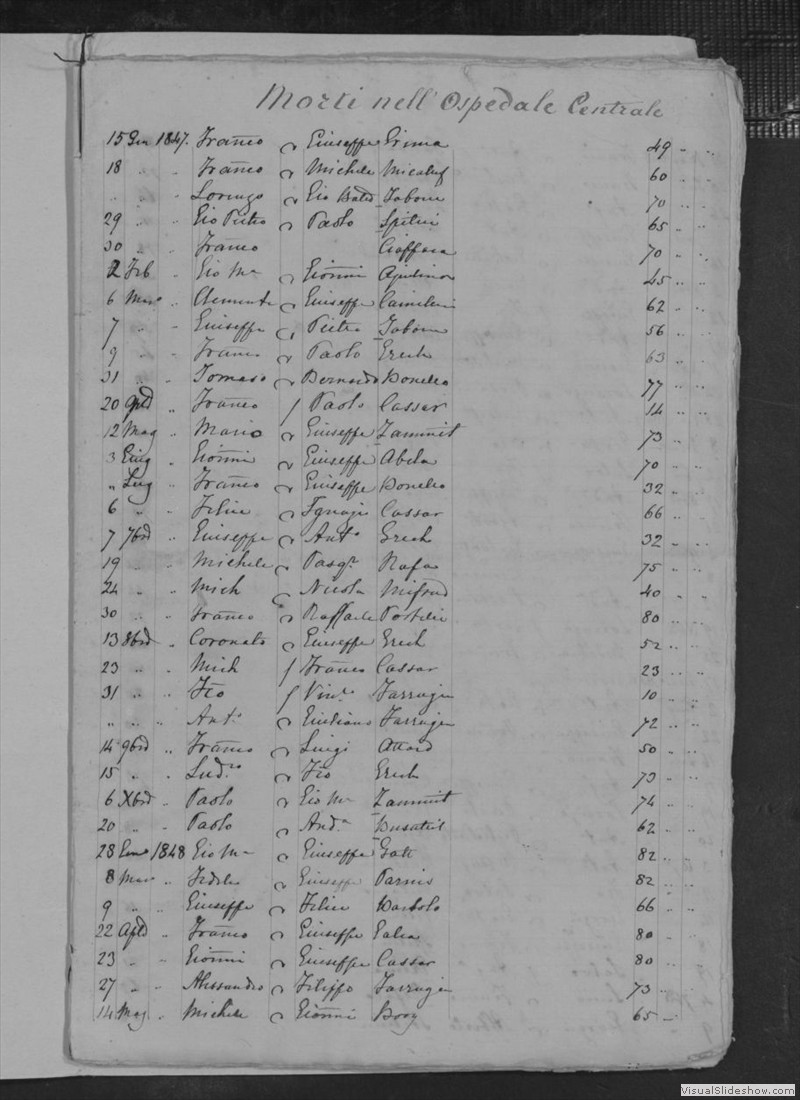 Morti nell' Ospedale Centrale
15 Gen 1847. Franco Giuseppe Grima 49 " "
18 " " Franco Michele Micalef 60 " "
" " " Lorenzo Gio Batta Zabone 70 " "
29 " " Gio Pietro Paolo Spiteri 65 " "
30 " " Franco 70 " "
2 Feb " Gio Ma Gionni Aquilina 45 " "
6 Mar " Clemente Giuseppe Camilleri 62 " "
7 " " Giuseppe Pietro Zabone 56 " "
9 " " Franco Paolo Grech 63 " "
31 " " Tomaso Bernardo Bonello 77 " "
20 " Franco Paolo Cassar 14 " "
12 Mag " Mario Giuseppe Zammit 73 " "
3 Giug " Gionni Giuseppe Abela 70 " "
" Lug " Franco Giuseppe Bonello 32 " "
6 " " Felice Ignazio Cassar 66 " "
7 7bre " Giuseppe Anto Grech 32 " "
19 " " Michele Pasqe 75 " "
24 " " Mich Nicola Mifsud 40 " "
30 " " Franco Raffaele Portelli 80 " "
13 8bre " Coronato Giuseppe Grech 52 " "
23 " " Mich Franco Cassar 23 " "
31 " " Vinc. Farrugia 10 " "
" " " Anto Giuliano Farrugia 72 " "
14 9bre " Franco Luigi Attard 50 " "
15 " " Grech 73 " "
6 Xbre " Paolo Gio Ma Zammit 74 " "
20 " " Paolo Anda Busuttil 62 " "
28 1848 Gio Ma Giuseppe Gatt 82 " "
8 Mar " Fedele Giuseppe Parnis 82 " "
9 " " Giuseppe Felice Bartolo 66 " "
22 " Franco Giuseppe Galea 80 " "
23 " " Gionni Giuseppe Cassar 80 " "
27 " " Alessandro Filippo Farrugia 73 " "
14 Mag " Michele Gionni Borg 65 " "
VisualSlideshow.com